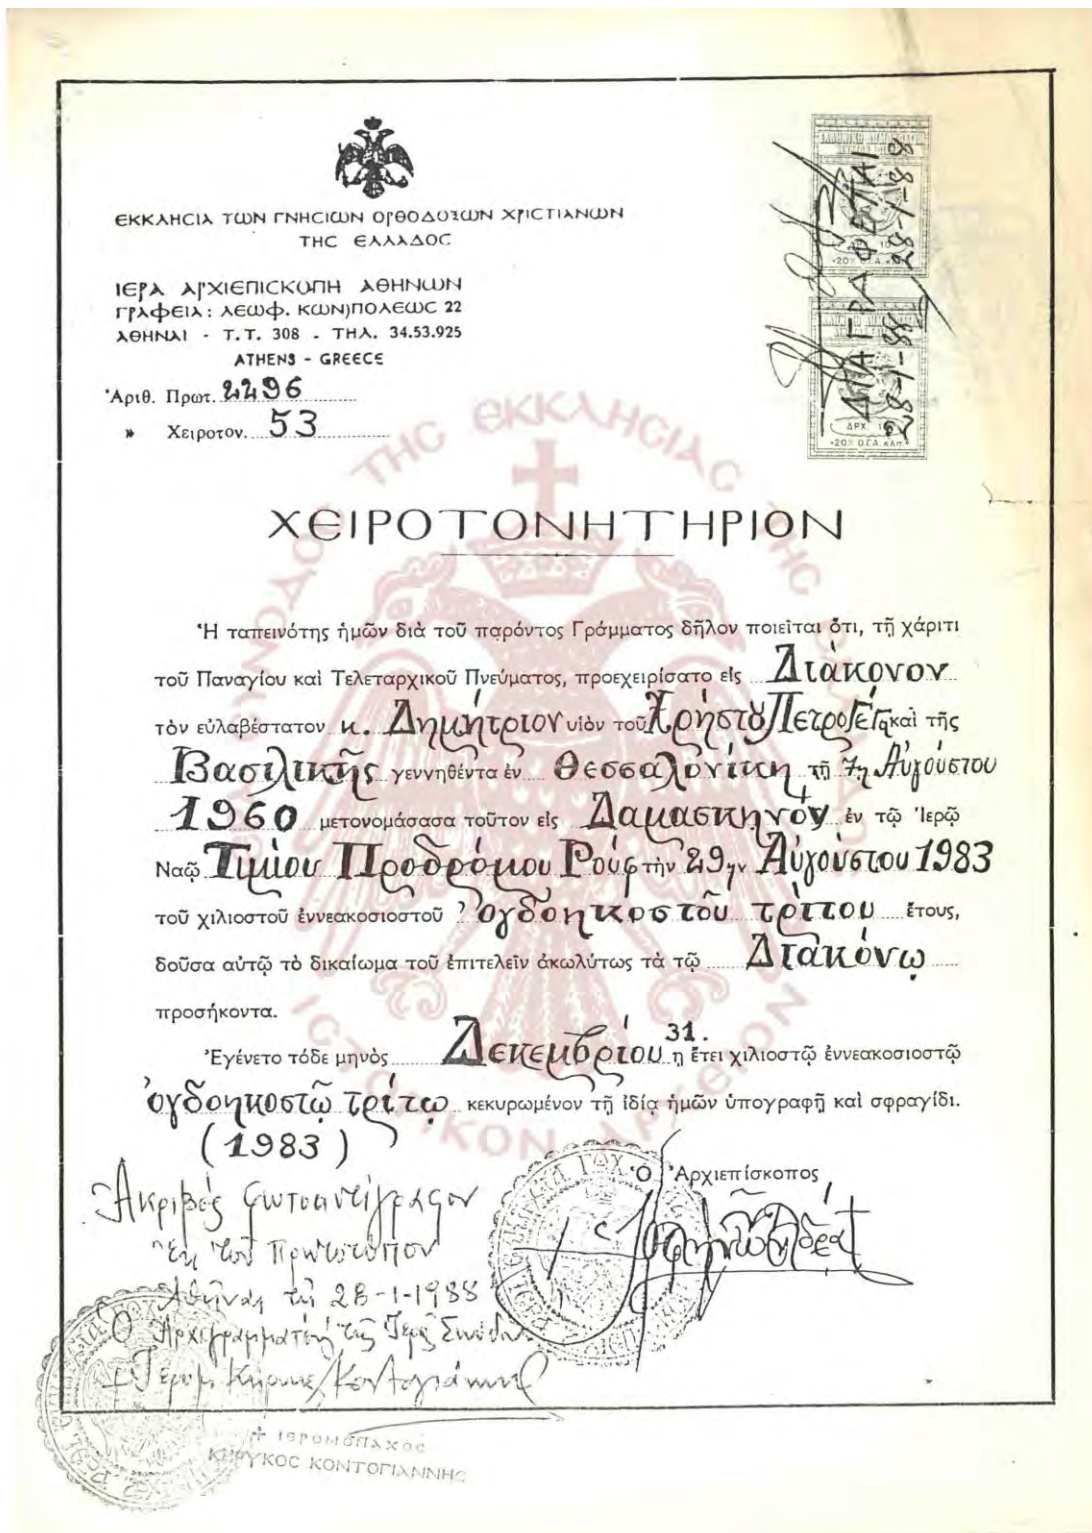 ΕΚΚΛΗCΙΑ ΤΩΝ ΓΝΗCΙΩΝ ΟΡΘΟΔΟΞΩΝ ΧΡΙCΤΙΑΝΩΝ
ΤΗC ΕΛΛΑΔΟC
ΙΕΡΑ ΑΡΧΙΕΠΙCΚΟΠΗ ΑΘΗΝΩΝ
ΓΡΑΦΕΙΑ: ΛΕΩΦ. ΚΩΝ)ΠΟΛΕΩC 22
ΑΘΗΝΑΙ - Τ.Τ. 308 - ΤΗΛ. 34.53.925
ATHENS - GREECE
Ἀριθ. Πρωτ. 2296
» Χειροτον. 53
ΔΙΑΓΡΑΦΕΤΑΙ
28-1-88
28-1-88
ΧΕΙΡΟΤΟΝΗΤΗΡΙΟΝ
Ἡ ταπεινότης ἡμῶν διὰ τοῦ παρόντος Γράμματος δῆλον ποιεῖται ὅτι, τῇ χάριτι
τοῦ Παναγίου καὶ Τελεταρχικοῦ Πνεύματος, προεχειρίσατο εἰς Διάκονον
τὸν εὐλαβέστατον κ. Δημήτριον υἱὸν τοῦ Χρήστου καὶ τῆς
Βασιλικῆς γεννηθέντα ἐν Θεσσαλονίκῃ τῇ 7ῃ Αὐγούστου
1960 μετονομάσασα τοῦτον εἰς Δαμασκηνόν ἐν τῷ Ἱερῷ
Ναῷ Τιμίου Προδρόμου Ρούφ τὴν 29ην Αὐγούστου 1983
τοῦ χιλιοστοῦ ἐννεακοσιοστοῦ ὀγδοηκοστοῦ τρίτου ἔτους,
δοῦσα αὐτῷ τὸ δικαίωμα τοῦ ἐπιτελεῖν ἀκωλύτως τὰ τῷ Διακόνῳ
προσήκοντα.
Ἐγένετο τόδε μηνὸς Δεκεμβρίου 31. ῃ ἔτει χιλιοστῷ ἐννεακοσιοστῷ
ὀγδοηκοστῷ τρίτῳ κεκυρωμένον τῇ ἰδίᾳ ἡμῶν ὑπογραφῇ καὶ σφραγίδι.
(1983)
Ὁ Ἀρχιεπίσκοπος
Ἀκριβές φωτοαντίγραφον
ἐκ τοῦ πρωτοτύπου
Ἀθῆναι τῇ 28-1-1988
Ὁ Ἀρχιγραμματεύς τῆς Ἱερᾶς Συνόδου
† ΙΕΡΟΜΟΝΑΧΟC
ΚΗΡΥΚΟC ΚΟΝΤΟΓΙΑΝΝΗC